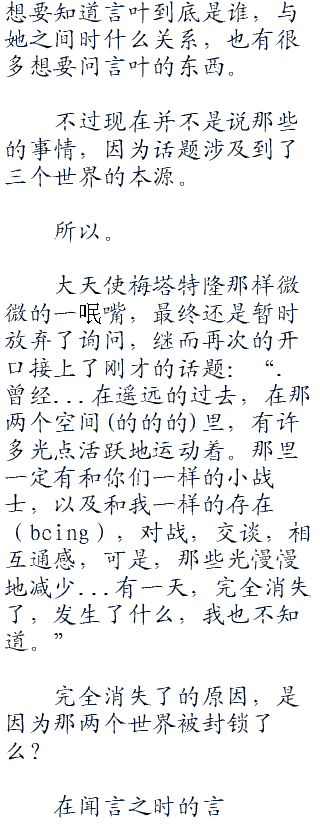 想要知道言叶到底是谁，与
她之间时什么关系，也有很
多想要问言叶的东西。
不过现在并不是说那些
的事情，因为话题涉及到了
三个世界的本源。
所以。
大天使梅塔特隆那样微
微的一呡嘴，最终还是暂时
放弃了询问，继而再次的开
口接上了刚才的话题：“.
曾经...在遥远的过去，在那
两个空间(的的的)里，有许
多光点活跃地运动着。那里
一定有和你们一样的小战
士，以及和我一样的存在
（bcing），对战，交谈，相
互通感，可是，那些光慢慢
地减少...有一天，完全消失
了，发生了什么，我也不知
道。”
完全消失了的原因，是
因为那两个世界被封锁了
么？
在闻言之时的言